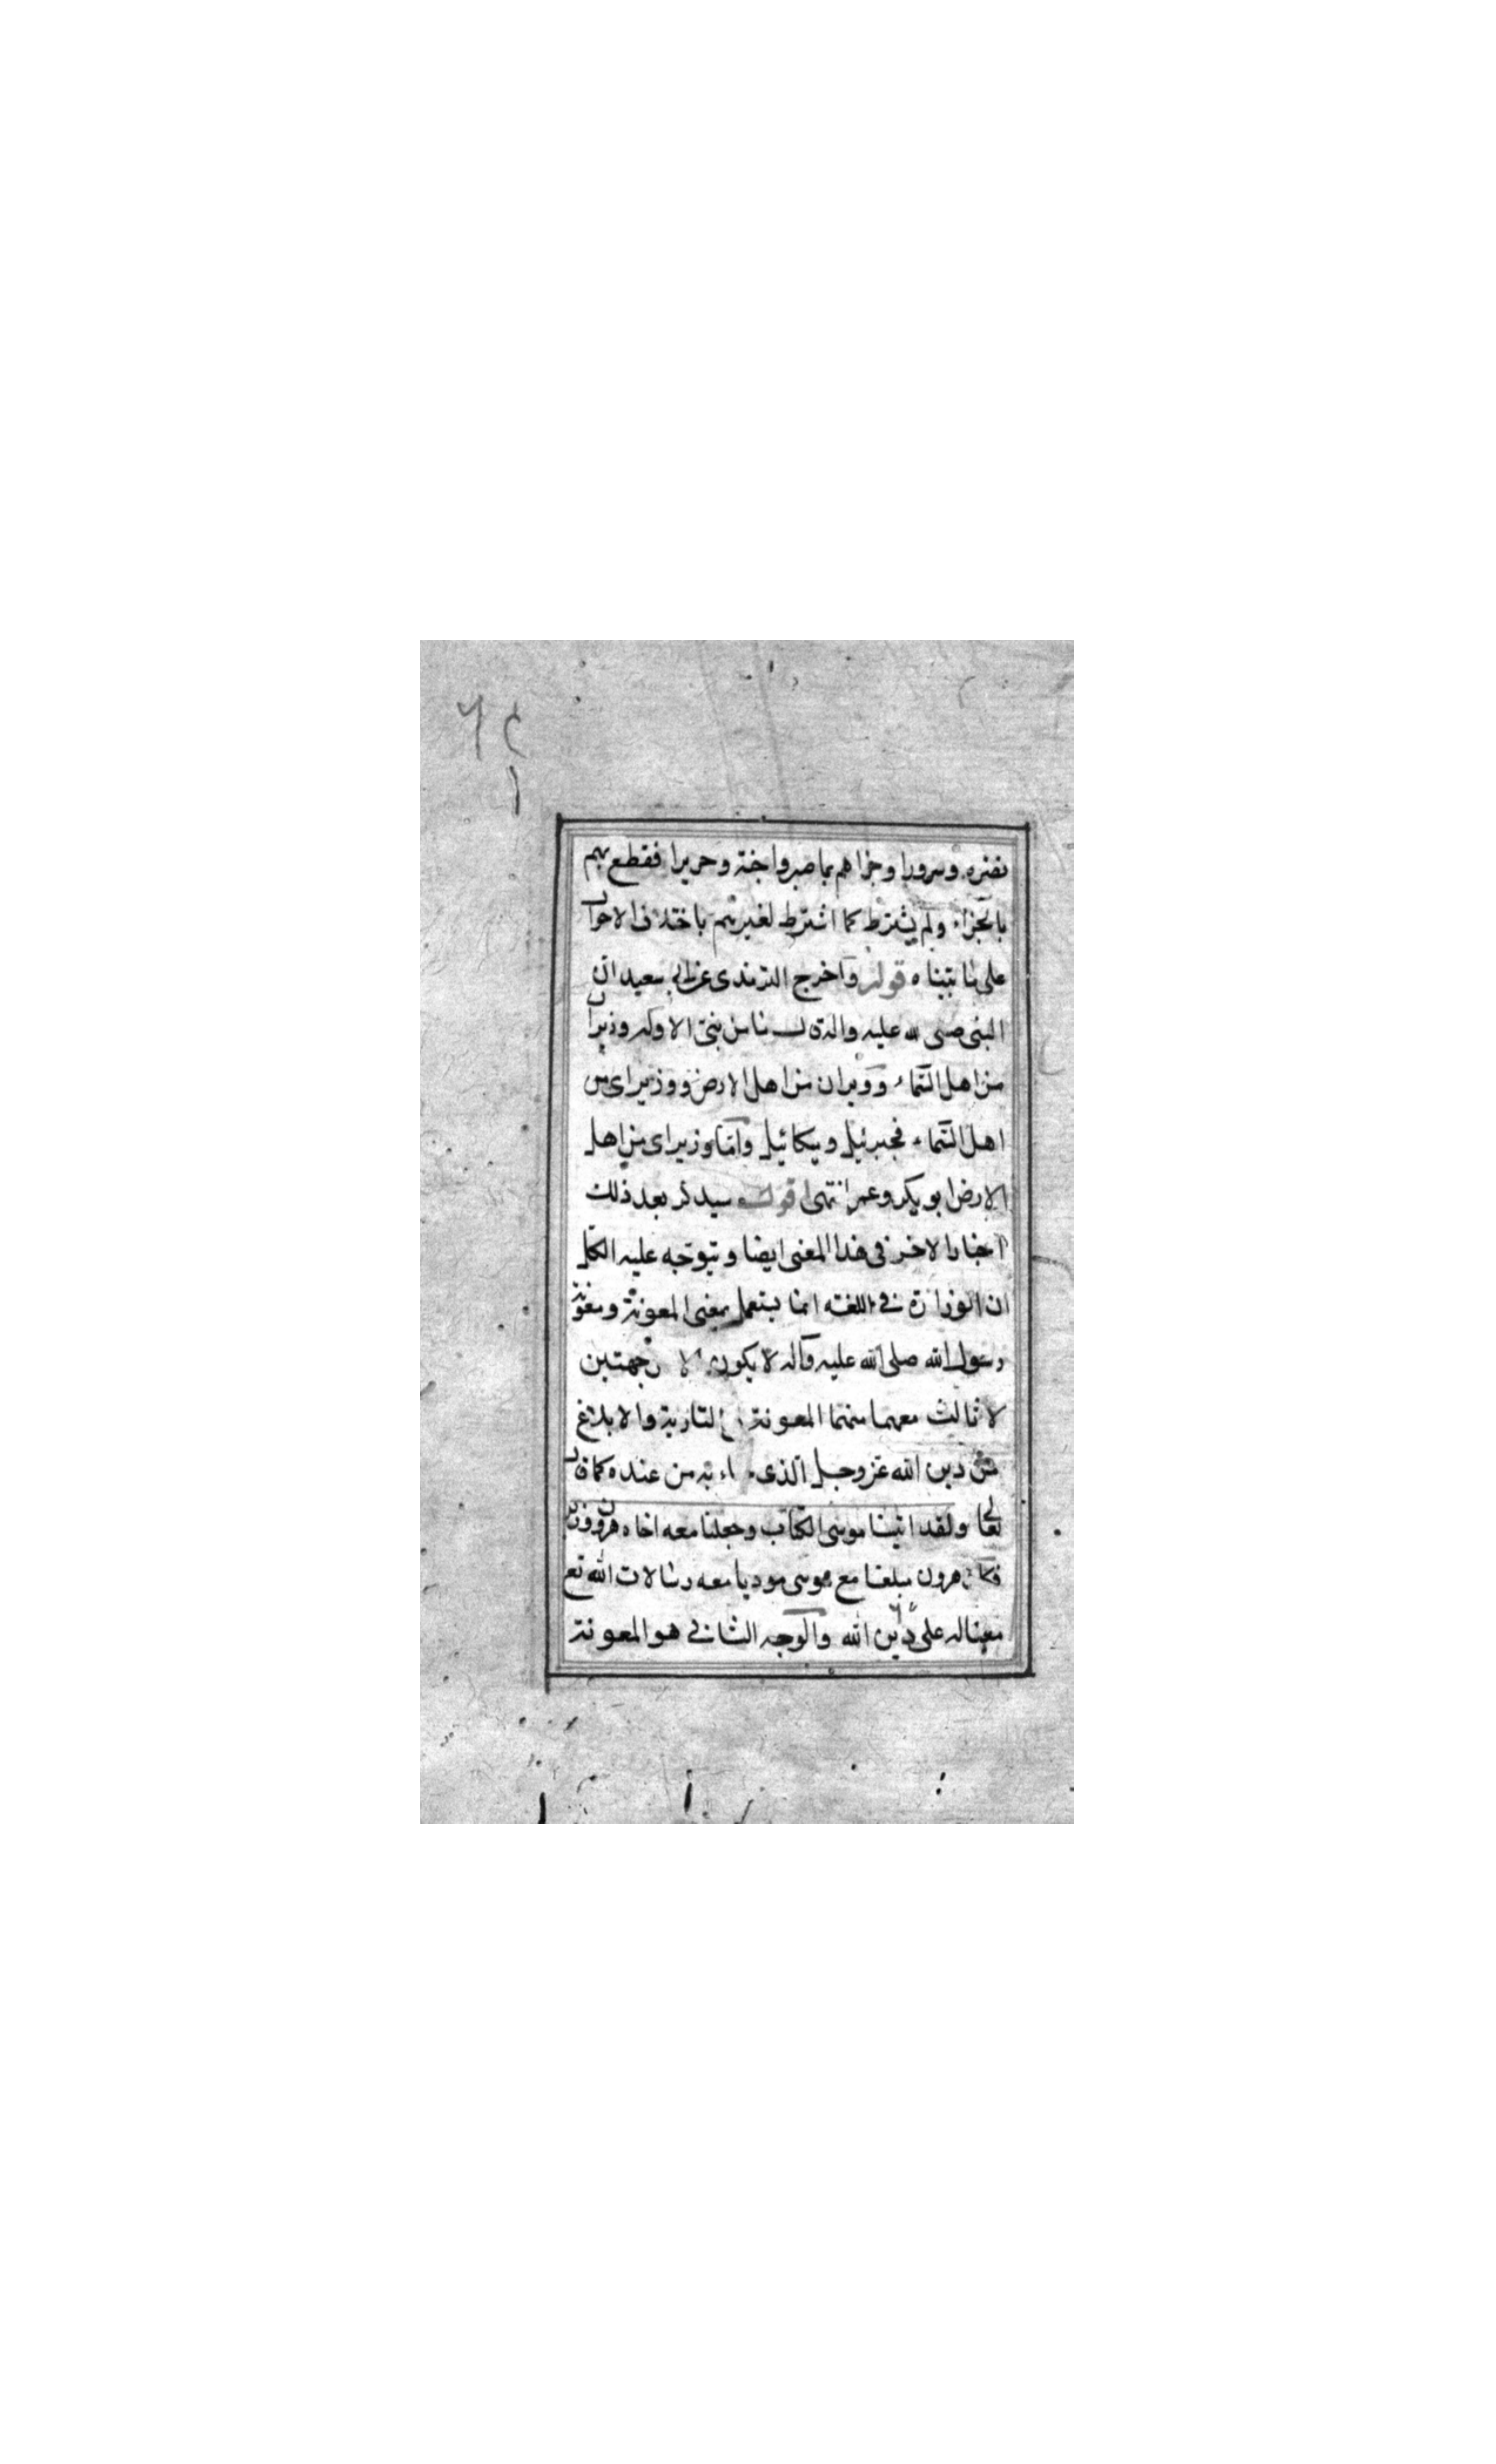 نضره وسرورا وجزاهم بما صبروا جنة وحريرا فقطع بهم
بالجزاء ولم يشترط كما اشترط لغيرهم باختلاف الاحوال
على ما بيناه قوله واخرج الترمذى عن ابى سعيد ان
النبى صلى لله عليه واله قال ما من بنى الا وله وزيران
من اهل السماء ووزيران من اهل الارض ووزيراى من
اهل السماء فجبرئيل وميكائيل واما وزيراى من اهل
الارض ابو بكر وعمر انتهى اقول سيذكر بعد ذلك
اخبارا لاخر فى هذا المعنى ايضا ويتوجه عليه الكل
ان الوزارة فى اللغة انما يستعمل بمعنى المعونة ومعونة
رسول الله صلى الله عليه وآله لا يكون الا جهتين
لا ثالث معهما منهما المعونة التازية والا بلاغ
عن دين الله عز وجل الذى جاء به من عنده كما قال
تعالى ولقد اتينا موسى الكتاب وجعلنا معه اخاه هرون وزيرا
فكان هرون مبلغا مع موسى موديا معه رسالات الله تع
معينا له على دين الله والوجه الثانى هو المعونة